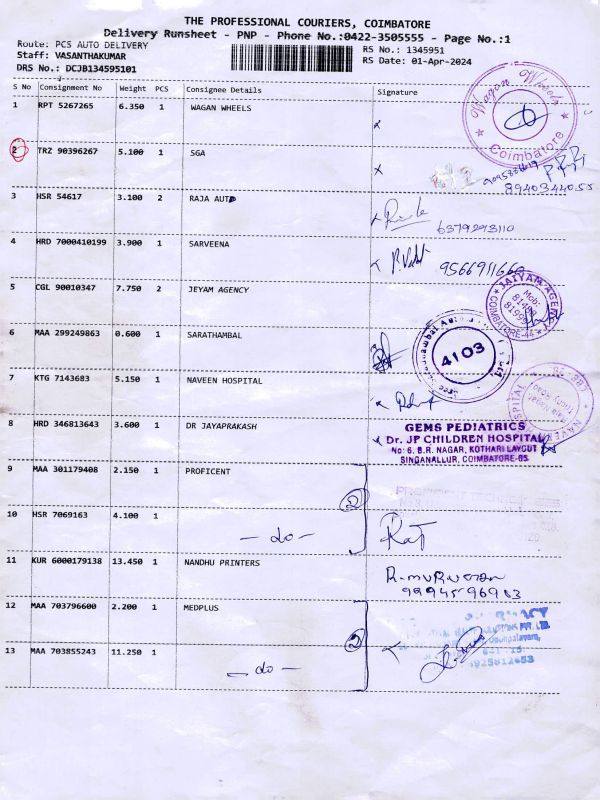 THE PROFESSIONAL COURIERS, COIMBATORE
Delivery Runsheet - PNP - Phone No.:0422-3505555 - Page No.:1
Route: PCS AUTO DELIVERY
RS No.: 1345951
Staff: VASANTHAKUMAR
RS Date: 01-Apr-2024
DRS No.: DCJB134595101
S No Consignment No Weight PCS Consignee Details Signature
1 RPT 5267265 6.350 1 WAGAN WHEELS
Wagon Wheels
Coimbatore
2 TRZ 90396267 5.100 1 SGA
8940344055
3 HSR 54617 3.100 2 RAJA AUTO
6379293110
4 HRD 7000410199 3.900 1 SARVEENA
9566911660
5 CGL 90010347 7.750 2 JEYAM AGENCY
JAIYAM AGENCY
Mob:
COIMBATORE-44
6 MAA 299249863 0.600 1 SARATHAMBAL
4103
7 KTG 7143683 5.150 1 NAVEEN HOSPITAL
8 HRD 346813643 3.600 1 DR JAYAPRAKASH
GEMS PEDIATRICS
Dr. JP CHILDREN HOSPITAL
No: 6, B.R. NAGAR, KOTHARI LAYOUT
SINGANALLUR, COIMBATORE-05
9 MAA 301179408 2.150 1 PROFICENT
2
10 HSR 7069163 4.100 1
- do -
11 KUR 6000179138 13.450 1 NANDHU PRINTERS
R.murugan
9994596963
12 MAA 703796600 2.200 1 MEDPLUS
2
13 MAA 703855243 11.250 1
- do -